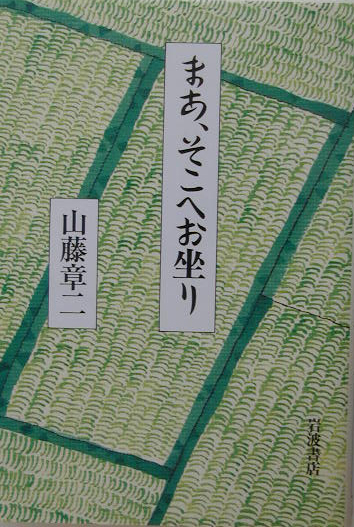 まあ、そこへお坐り
山藤章二
岩波書店